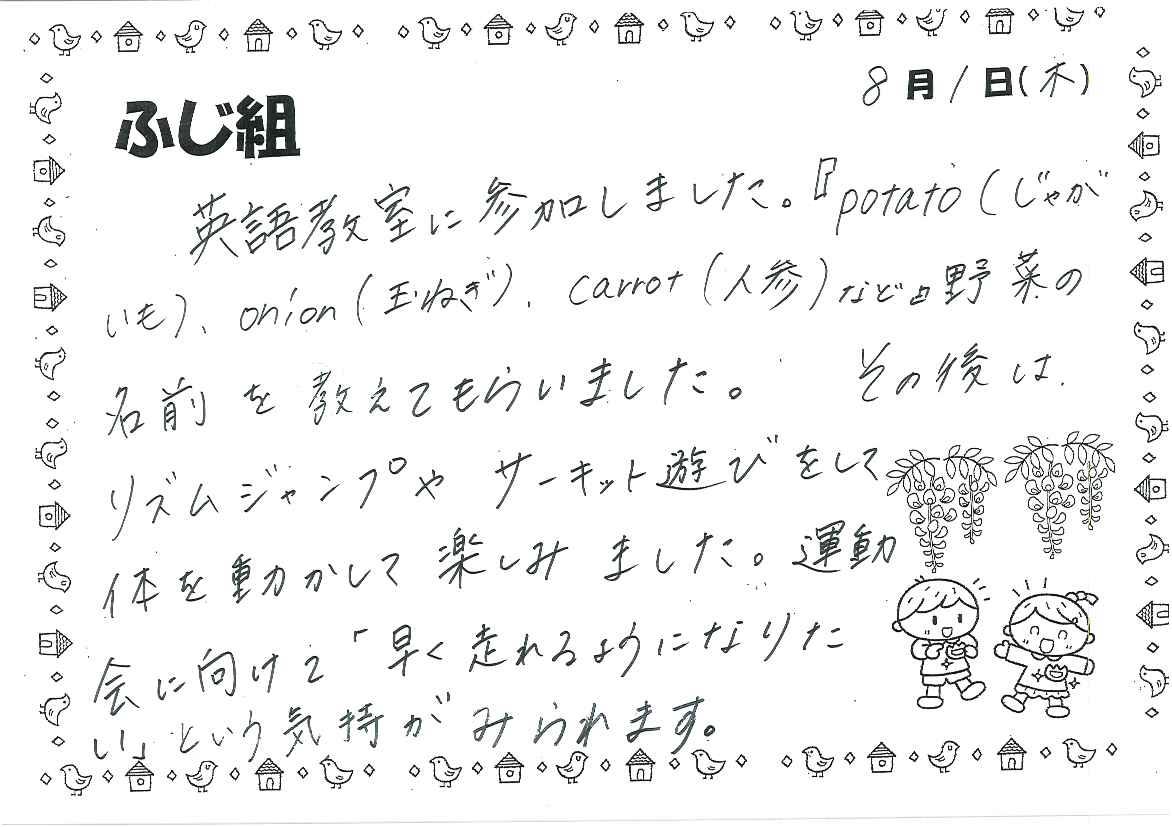 8月1日(木)
ふじ組
英語教室に参加しました。『potato(じゃが
いも)、onion(玉ねぎ)、carrot(人参)など』野菜の
名前を教えてもらいました。 その後は、
リズムジャンプやサーキット遊びをして
体を動かして楽しみました。運動
会に向けて「早く走れるようになりた
い」という気持がみられます。